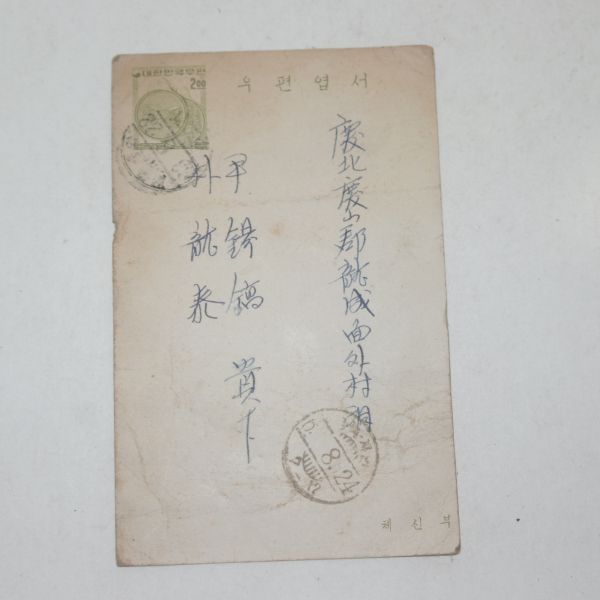 대한민국우편
2.00
우편엽서
慶北慶山郡龍城面外村洞
錫鎬 貴下
朴龍泰
8.24
체신부